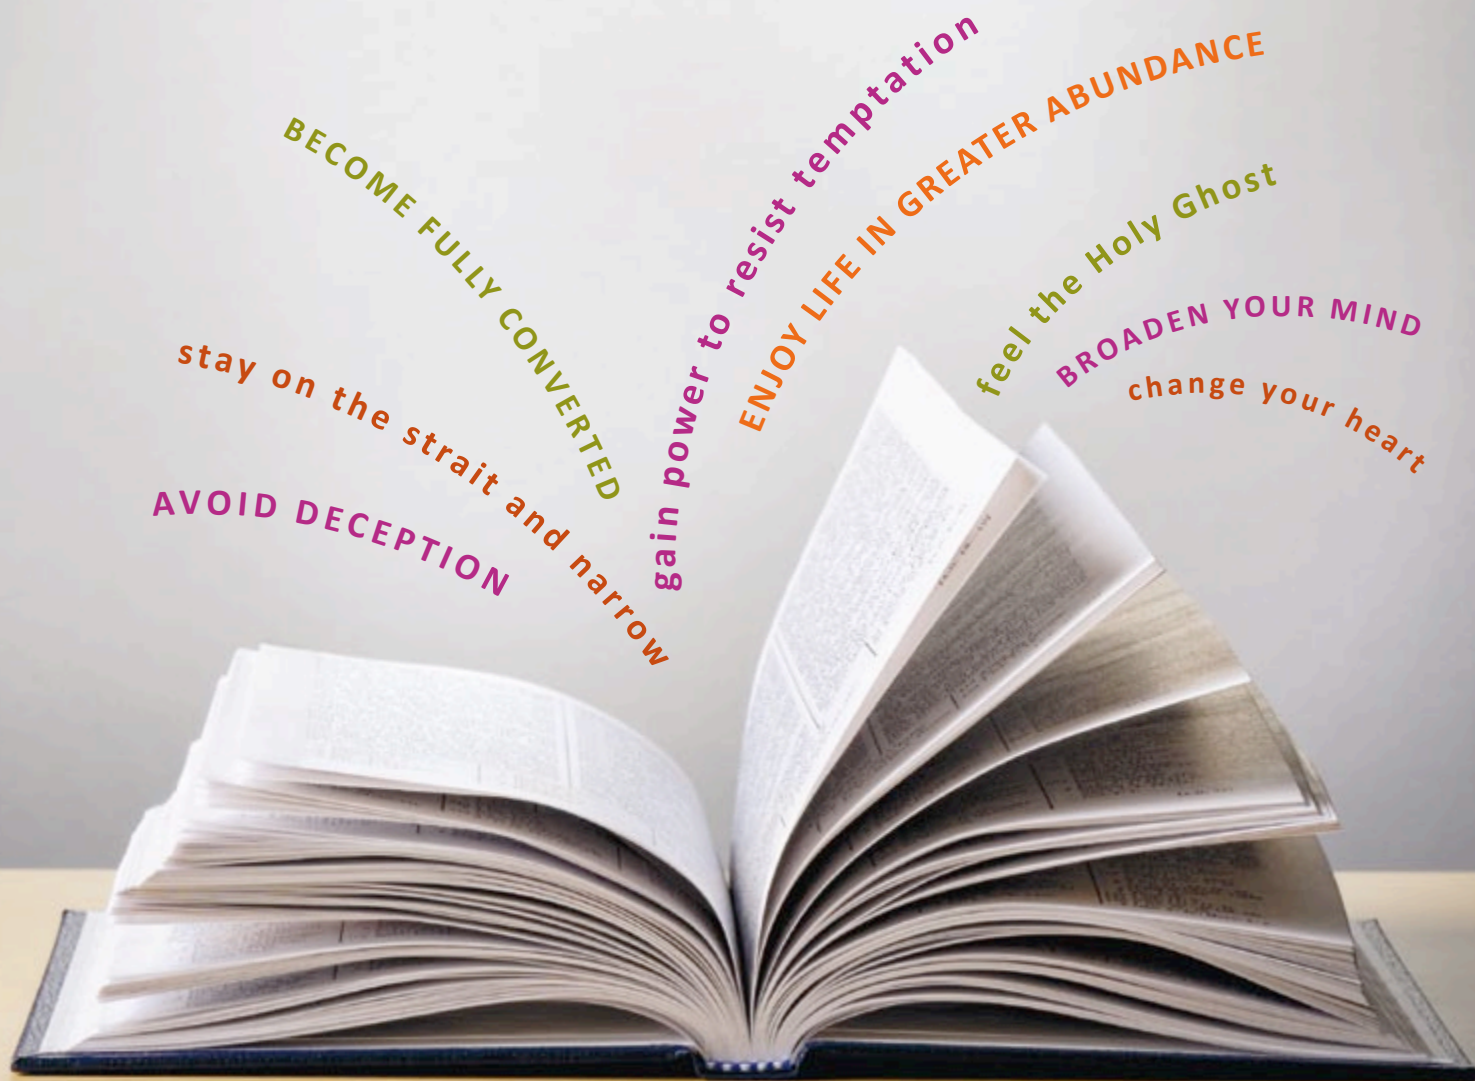 BECOME FULLY CONVERTED
stay on the strait and narrow
AVOID DECEPTION
gain power to resist temptation
ENJOY LIFE IN GREATER ABUNDANCE
feel the Holy Ghost
BROADEN YOUR MIND
change your heart